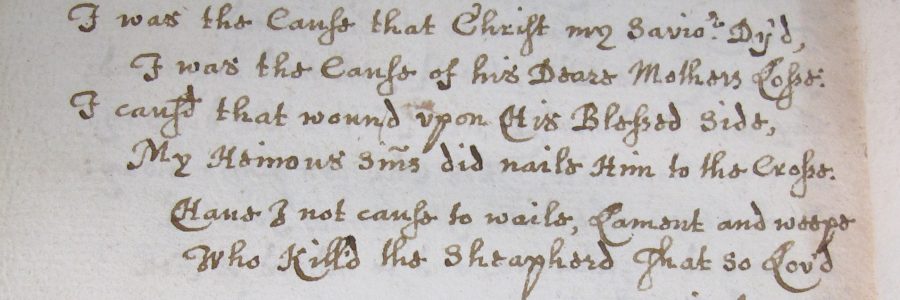 I was the Cause that Christ my Savior Dy'd,
I was the Cause of his Deare Mothers Losse:
I causd that wound upon His Blessed Side,
My Heinous Sinns did naile Him to the Crosse.
Haue I not cause to waile, Lament and weepe
Who Kill'd the Sheapherd That so Lov'd